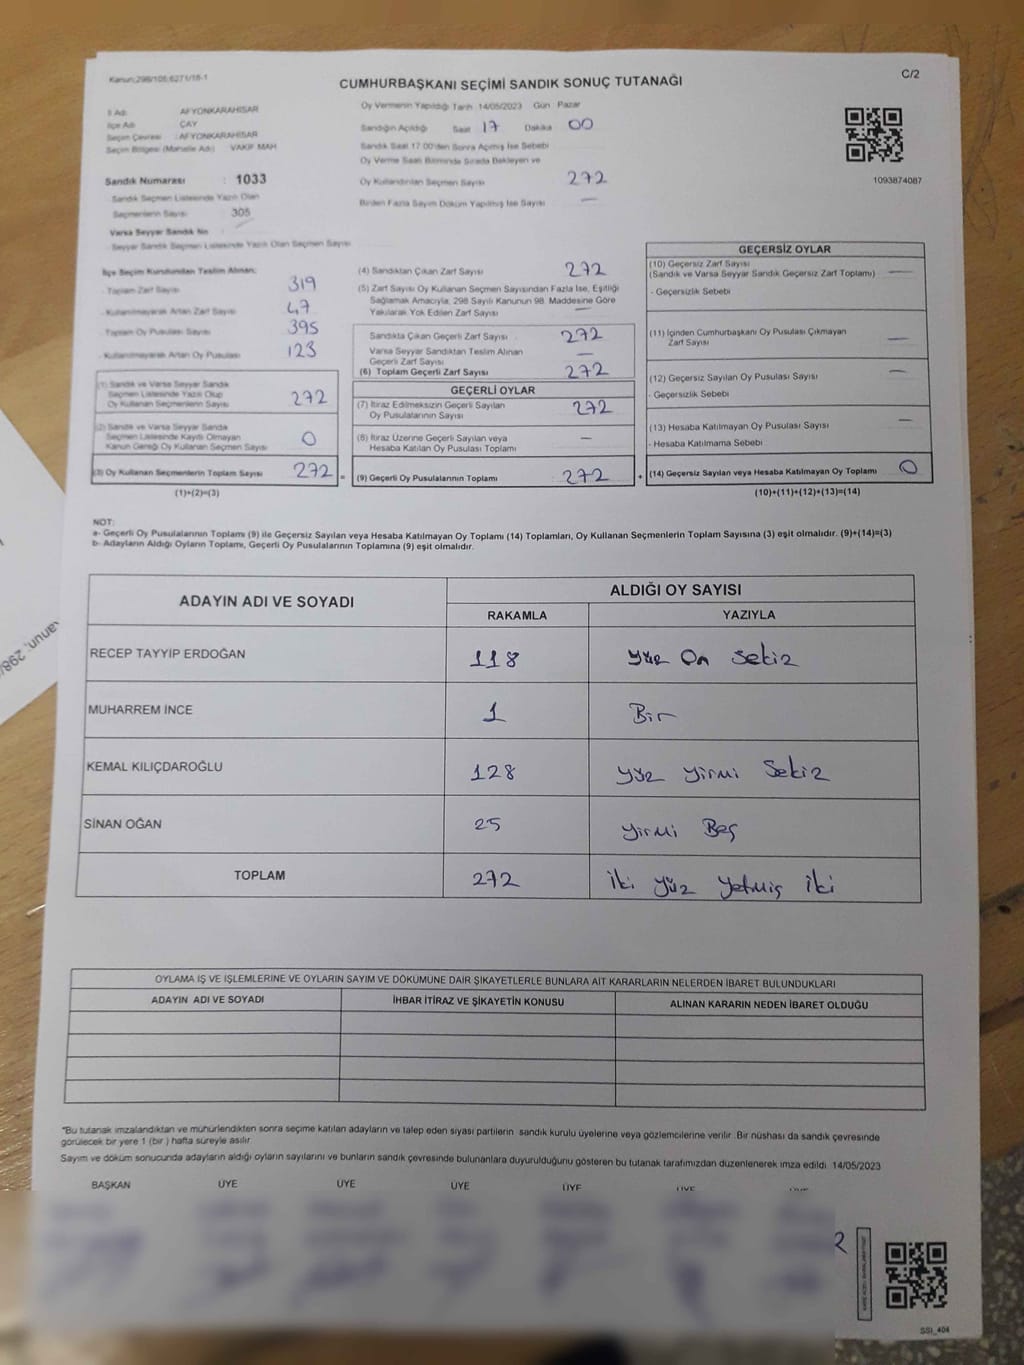 Kanun;298/105;6271/18-1
C/2
CUMHURBAŞKANI SEÇİMİ SANDIK SONUÇ TUTANAĞI
İl Adı AFYONKARAHİSAR
İlçe Adı ÇAY
Seçim Çevresi : AFYONKARAHİSAR
Seçim Bölgesi (Mahalle Adı) VAKIF MAH
Sandık Numarası : 1033
Sandık Seçmen Listesinde Yazılı Olan
Seçmenlerin Sayısı 305
Varsa Seyyar Sandık No
- Seyyar Sandık Seçmen Listesinde Yazılı Olan Seçmen Sayısı
Oy Vermenin Yapıldığı Tarih 14/05/2023 Gün Pazar
Sandığın Açıldığı Saat 17 Dakika 00
Sandık Saat 17.00'den Sonra Açılmış İse Sebebi
Oy Verme Saati Bitiminde Sırada Bekleyen ve
Oy Kullandırılan Seçmen Sayısı 272
Birden Fazla Sayım Döküm Yapılmış İse Sayısı —
1093874087
İlçe Seçim Kurulundan Teslim Alınan;
- Toplam Zarf Sayısı 319
- Kullanılmayarak Artan Zarf Sayısı 47
- Toplam Oy Pusulası Sayısı 395
- Kullanılmayarak Artan Oy Pusulası 123
(1) Sandık ve Varsa Seyyar Sandık
Seçmen Listesinde Yazılı Olup
Oy Kullanan Seçmenlerin Sayısı 272
(2) Sandık ve Varsa Seyyar Sandık
Seçmen Listesinde Kayıtlı Olmayan
Kanun Gereği Oy Kullanan Seçmen Sayısı 0
(3) Oy Kullanan Seçmenlerin Toplam Sayısı 272 =
(1)+(2)=(3)
(4) Sandıktan Çıkan Zarf Sayısı 272
(5) Zarf Sayısı Oy Kullanan Seçmen Sayısından Fazla İse, Eşitliği
Sağlamak Amacıyla, 298 Sayılı Kanunun 98. Maddesine Göre
Yakılarak Yok Edilen Zarf Sayısı —
Sandıkta Çıkan Geçerli Zarf Sayısı 272
Varsa Seyyar Sandıktan Teslim Alınan
Geçerli Zarf Sayısı —
(6) Toplam Geçerli Zarf Sayısı 272
GEÇERLİ OYLAR
(7) İtiraz Edilmeksizin Geçerli Sayılan
Oy Pusulalarının Sayısı 272
(8) İtiraz Üzerine Geçerli Sayılan veya
Hesaba Katılan Oy Pusulası Toplamı —
(9) Geçerli Oy Pusulalarının Toplamı 272 +
GEÇERSİZ OYLAR
(10) Geçersiz Zarf Sayısı
(Sandık ve Varsa Seyyar Sandık Geçersiz Zarf Toplamı) —
- Geçersizlik Sebebi
(11) İçinden Cumhurbaşkanı Oy Pusulası Çıkmayan
Zarf Sayısı —
(12) Geçersiz Sayılan Oy Pusulası Sayısı —
- Geçersizlik Sebebi
(13) Hesaba Katılmayan Oy Pusulası Sayısı —
- Hesaba Katılmama Sebebi
(14) Geçersiz Sayılan veya Hesaba Katılmayan Oy Toplamı 0
(10)+(11)+(12)+(13)=(14)
NOT:
a- Geçerli Oy Pusulalarının Toplamı (9) ile Geçersiz Sayılan veya Hesaba Katılmayan Oy Toplamı (14) Toplamları, Oy Kullanan Seçmenlerin Toplam Sayısına (3) eşit olmalıdır. (9)+(14)=(3)
b- Adayların Aldığı Oyların Toplamı, Geçerli Oy Pusulalarının Toplamına (9) eşit olmalıdır.
ADAYIN ADI VE SOYADI
ALDIĞI OY SAYISI
RAKAMLA YAZIYLA
RECEP TAYYİP ERDOĞAN 118 yüz on sekiz
MUHARREM İNCE 1 Bir
KEMAL KILIÇDAROĞLU 128 yüz yirmi sekiz
SİNAN OĞAN 25 yirmi Beş
TOPLAM 272 iki yüz yetmiş iki
OYLAMA İŞ VE İŞLEMLERİNE VE OYLARIN SAYIM VE DÖKÜMÜNE DAİR ŞİKAYETLERLE BUNLARA AİT KARARLARIN NELERDEN İBARET BULUNDUKLARI
ADAYIN ADI VE SOYADI İHBAR İTİRAZ VE ŞİKAYETİN KONUSU ALINAN KARARIN NEDEN İBARET OLDUĞU
"Bu tutanak imzalandıktan ve mühürlendikten sonra seçime katılan adayların ve talep eden siyasi partilerin sandık kurulu üyelerine veya gözlemcilerine verilir. Bir nüshası da sandık çevresinde
görülecek bir yere 1 (bir ) hafta süreyle asılır.
Sayım ve döküm sonucunda adayların aldığı oyların sayılarını ve bunların sandık çevresinde bulunanlara duyurulduğunu gösteren bu tutanak tarafımızdan düzenlenerek imza edildi. 14/05/2023
BAŞKAN ÜYE ÜYE ÜYE ÜYE ÜYE
SSI_404